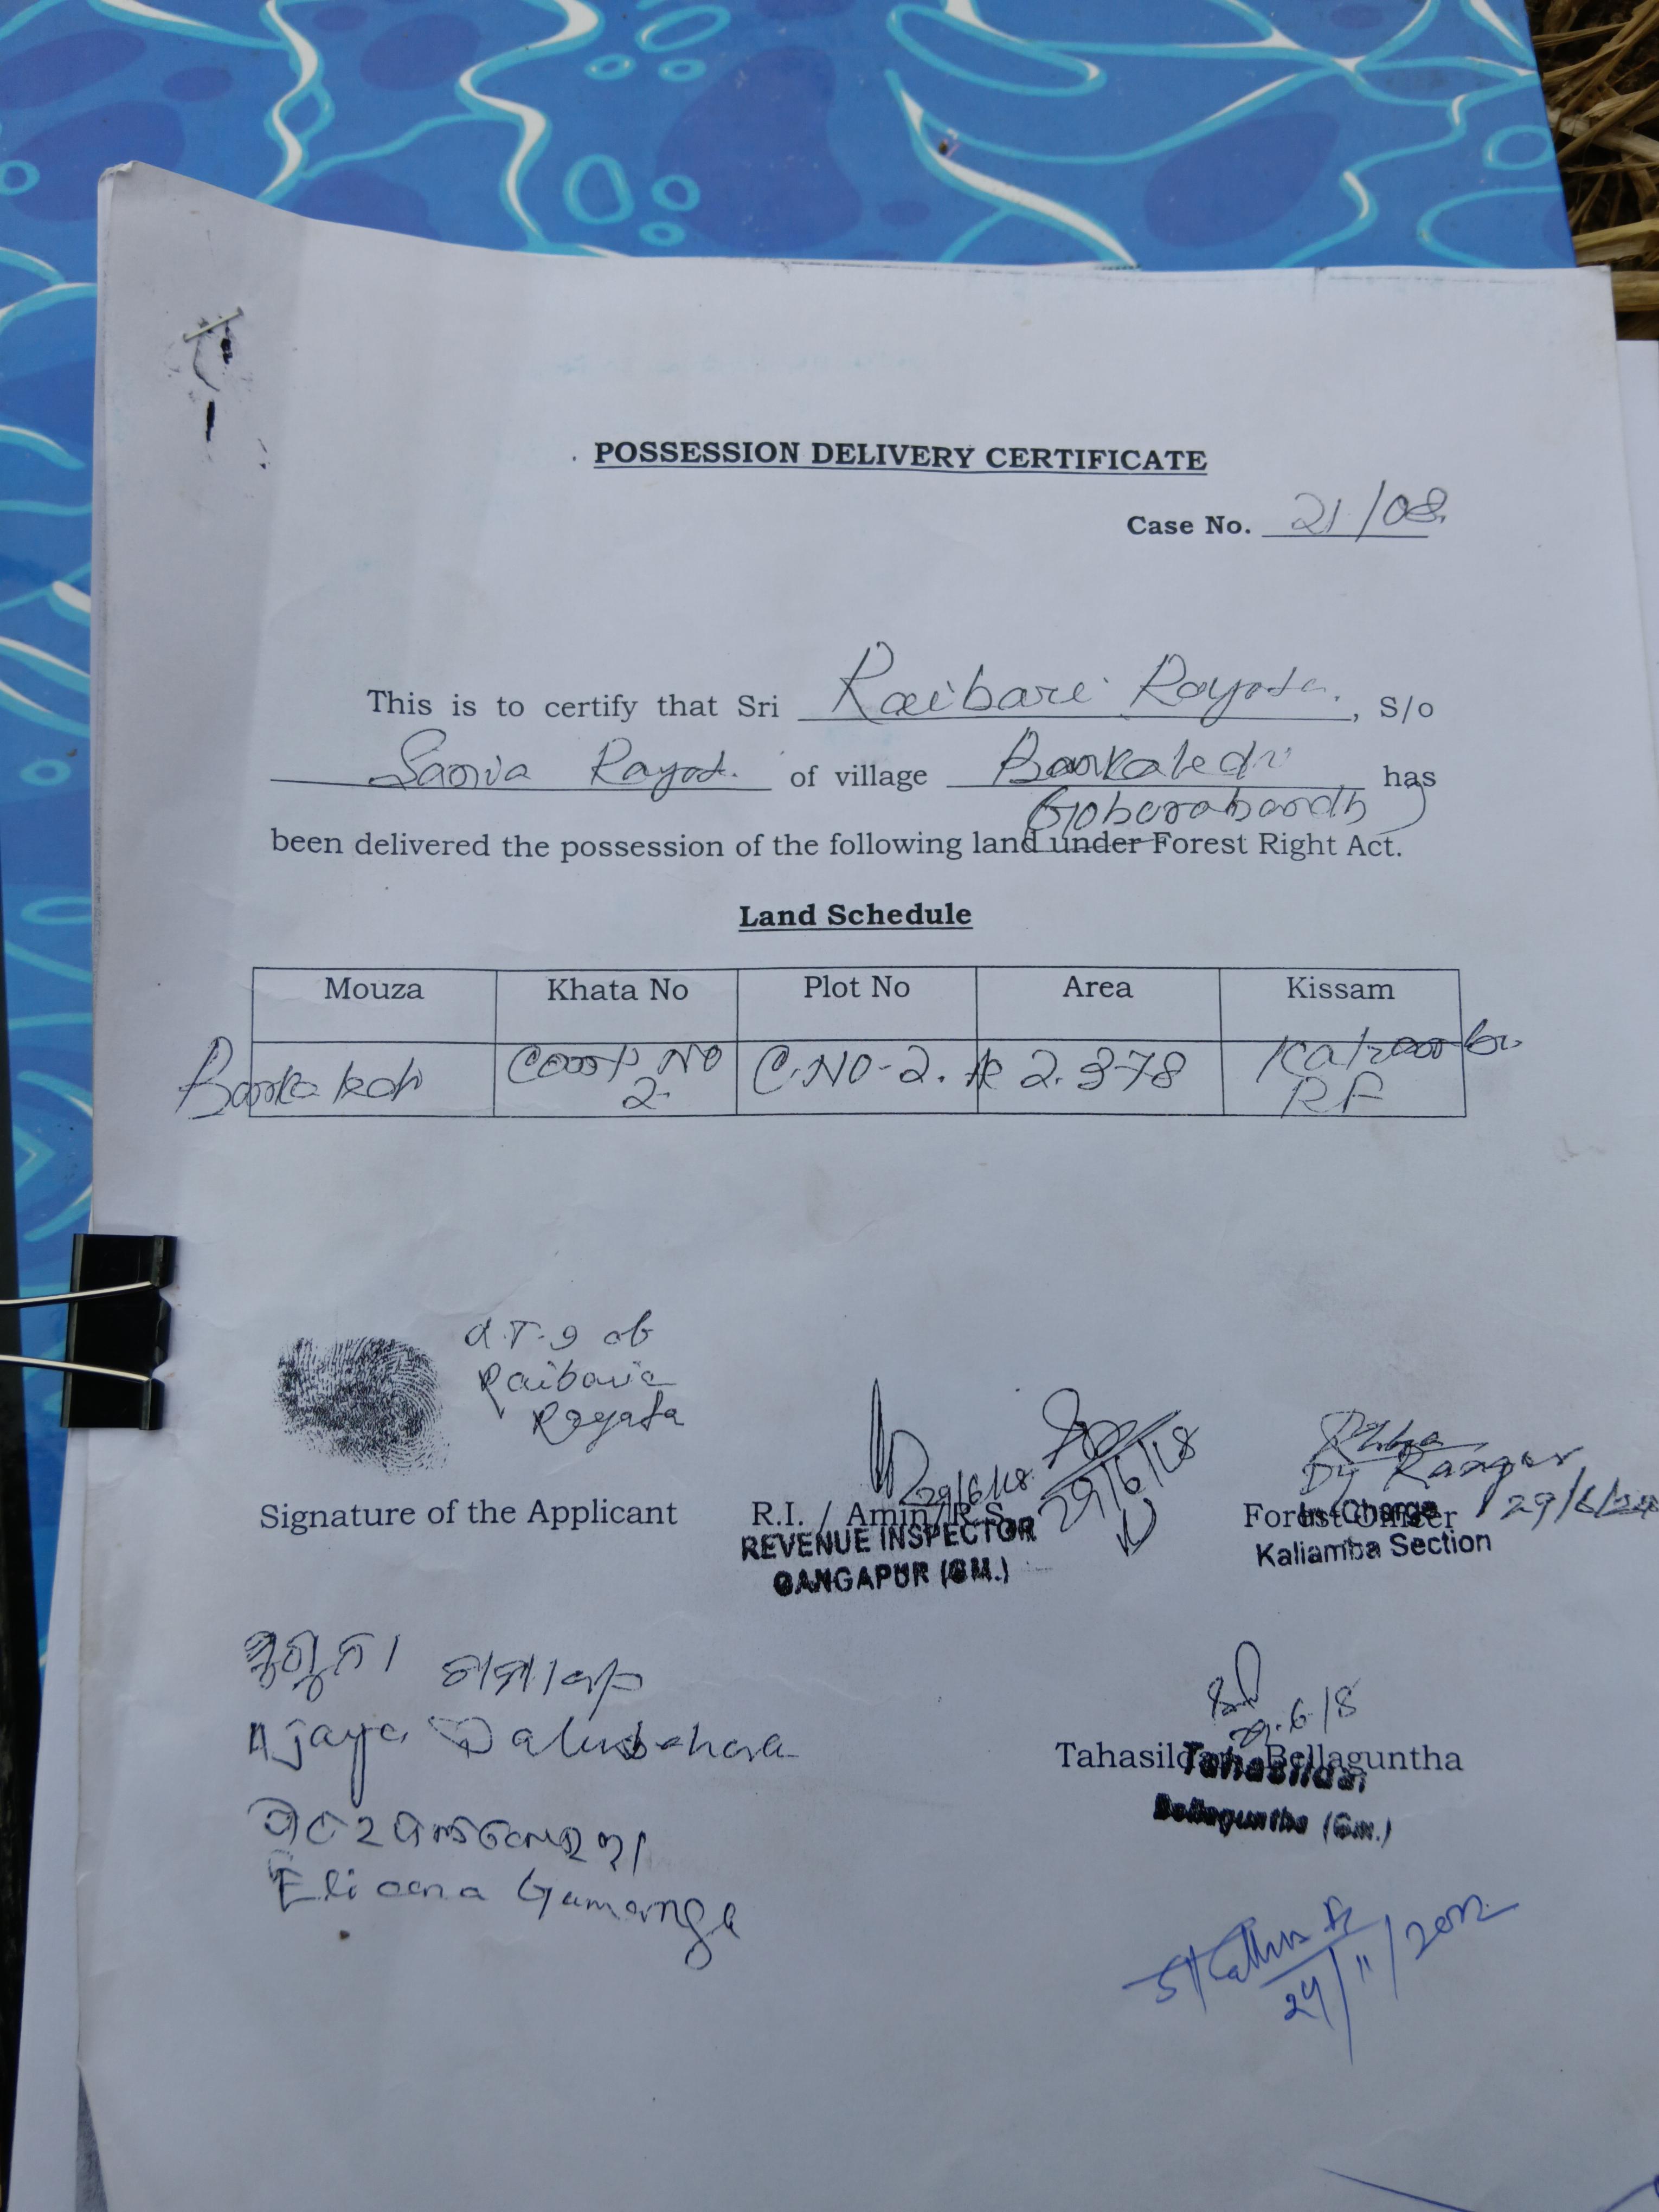 POSSESSION DELIVERY CERTIFICATE
Case No. 21/08.
This is to certify that Sri Raibari Rayata., S/o
Sania Rayat. of village Bankaledi has
Gobarabandh)
been delivered the possession of the following land under Forest Right Act.
Land Schedule
Mouza Khata No Plot No Area Kissam
Comp. NO C.NO-2. Ac 2.378
2. RF
L.T.I of
Raibaria
Rayata
29/6/18 29/6/18 Dy Ranger
Signature of the Applicant R.I. / Amin/R.S. Forest Officer 29/6/
REVENUE INSPECTOR In-Charge
GANGAPUR (GM.) Kaliamba Section
29.6/18
Ajaya Dalabehera
Tahasildar, Bellaguntha
Tahasildar
Bellaguntha (Gm.)
Gamanga
24/11/2012